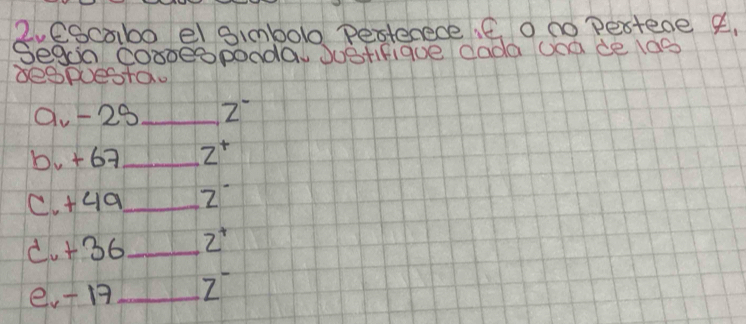 2. Escribo el simbolo Pertenece ∈ o no Pertece ∉.
Según corresponda. Justifique cada una de las
respuesta.
a. -28 ____ Z⁻
b. +67 ____ Z⁺
c. +49 ____ Z⁻
d. +36 ____ Z⁺
e. -17 ____ Z⁻